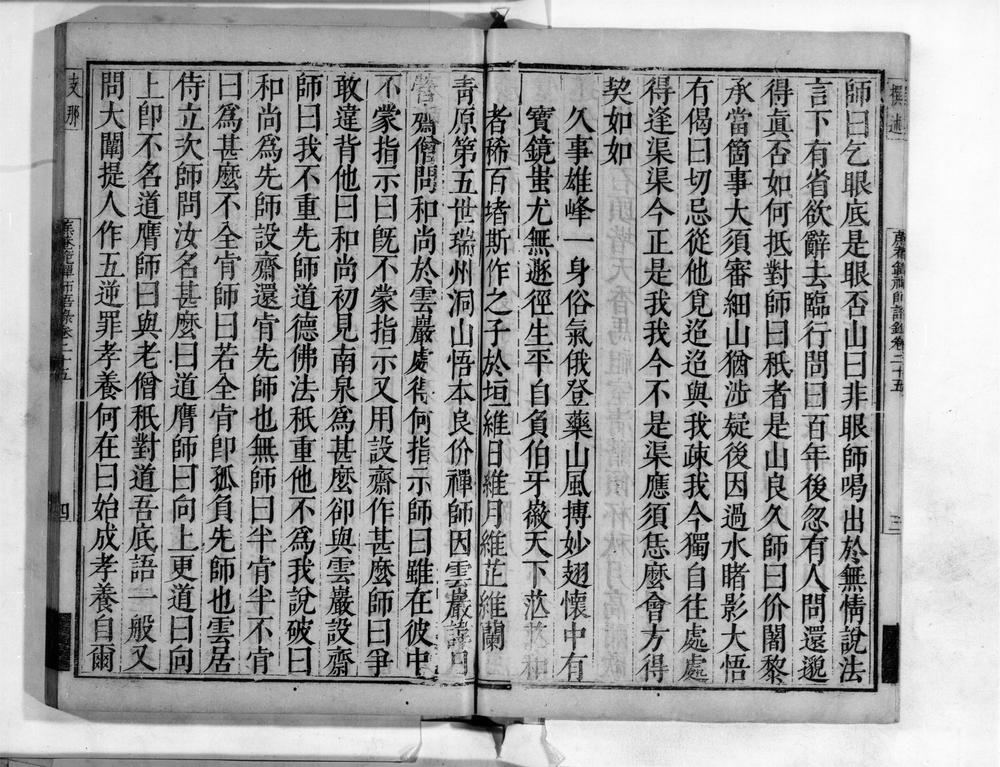 師曰乞眼底是眼否山曰非眼師喝出於無情說法
言下有省欲辭去臨行問曰百年後忽有人問還邈
得眞否如何抵對師曰秖者是山良久師曰价闍黎
承當箇事大須審細山猶涉疑後因過水睹影大悟
有偈曰切忌從他覓迢迢與我疎我今獨自往處處
得逢渠渠今正是我我今不是渠應須恁麼會方得
契如如
久事雄峰一身俗氣俄登藥山風搏妙翅懷中有
寶鏡蚩尤無遯徑生平自負伯牙徽天下茫茫
者稀百堵斯作之子於垣維日維月維芷維蘭
靑原第五世瑞州洞山悟本良价禪師因雲巖諱日
營齋僧問和尚於雲巖處得何指示師曰雖在彼中
不蒙指示曰旣不蒙指示又用設齋作甚麼師曰爭
敢違背他曰和尚初見南泉爲甚麼卻與雲巖設齋
師曰我不重先師道德佛法秖重他不爲我說破曰
和尚爲先師設齋還肯先師也無師曰半肯半不肯
曰爲甚麼不全肯師曰若全肯卽孤負先師也雲居
侍立次師問汝名甚麼曰道膺師曰向上更道曰向
上卽不名道膺師曰與老僧秖對道吾底語一般又
問大闡提人作五逆罪孝養何在曰始成孝養自爾
撰述
卷二十五
三
支那
禪師語錄卷二十五
四